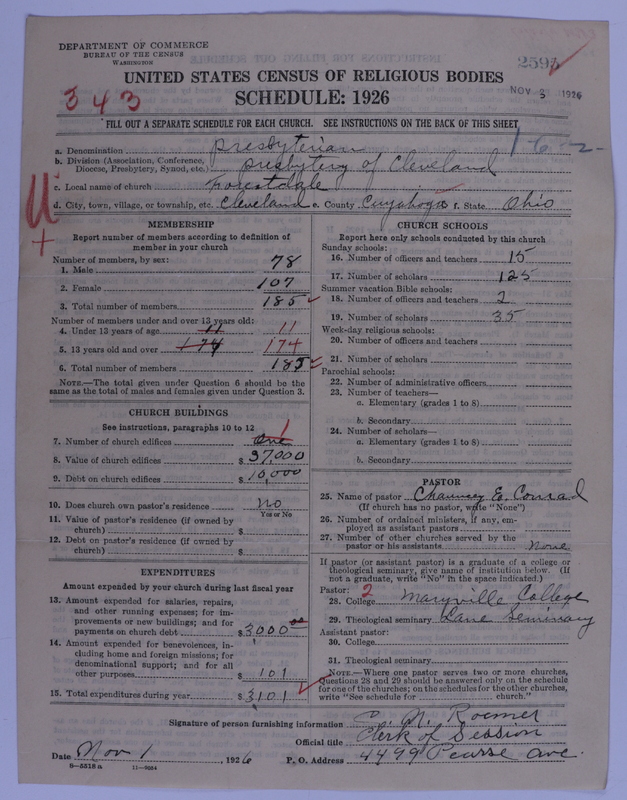 DEPARTMENT OF COMMERCE
BUREAU OF THE CENSUS
WASHINGTON
2595
NOV 3 1926
UNITED STATES CENSUS OF RELIGIOUS BODIES
SCHEDULE: 1926
343
FILL OUT A SEPARATE SCHEDULE FOR EACH CHURCH. SEE INSTRUCTIONS ON THE BACK OF THIS SHEET
a. Denomination Presbyterian
b. Division (Association, Conference, Diocese, Presbytery, Synod, etc.) Presbytery of Cleveland
c. Local name of church Forestdale
d. City, town, village, or township, etc. Cleveland e. County Cuyahoga f. State Ohio
MEMBERSHIP
Report number of members according to definition of
member in your church
Number of members, by sex:
1. Male 78
2. Female 107
3. Total number of members 185
Number of members under and over 13 years old:
4. Under 13 years of age 11 11
5. 13 years old and over 174 174
6. Total number of members 185
NOTE.—The total given under Question 6 should be the
same as the total of males and females given under Question 3.
CHURCH BUILDINGS
See instructions, paragraphs 10 to 12
7. Number of church edifices One 1
8. Value of church edifices $ 37,000
9. Debt on church edifices $ 10,000
10. Does church own pastor's residence No
Yes or No
11. Value of pastor's residence (if owned by
church) $
12. Debt on pastor's residence (if owned by
church) $
EXPENDITURES
Amount expended by your church during last fiscal year
13. Amount expended for salaries, repairs,
and other running expenses; for im-
provements or new buildings; and for
payments on church debt $ 3000 00
14. Amount expended for benevolences, in-
cluding home and foreign missions; for
denominational support; and for all
other purposes $ 101
15. Total expenditures during year $ 3101
CHURCH SCHOOLS
Report here only schools conducted by this church
Sunday schools:
16. Number of officers and teachers 15
17. Number of scholars 125
Summer vacation Bible schools:
18. Number of officers and teachers 2
19. Number of scholars 35
Week-day religious schools:
20. Number of officers and teachers
21. Number of scholars
Parochial schools:
22. Number of administrative officers
23. Number of teachers—
a. Elementary (grades 1 to 8)
b. Secondary
24. Number of scholars—
a. Elementary (grades 1 to 8)
b. Secondary
PASTOR
25. Name of pastor Chauncey E. Conrad
(If church has no pastor, write "None")
26. Number of ordained ministers, if any, em-
ployed as assistant pastors
27. Number of other churches served by the
pastor or his assistants None
If pastor (or assistant pastor) is a graduate of a college or
theological seminary, give name of institution below. (If
not a graduate, write "No" in the space indicated.)
Pastor: 2
28. College Maryville College
29. Theological seminary Lane Seminary
Assistant pastor:
30. College
31. Theological seminary
NOTE.—Where one pastor serves two or more churches,
Questions 28 and 29 should be answered only on the schedule
for one of the churches; on the schedules for the other churches,
write "See schedule for church."
Signature of person furnishing information C. N. Roemer
Official title Clerk of Session
Date Nov 1 1926 P. O. Address 4499 Pearse Ave.
8—5518 a 11—9884